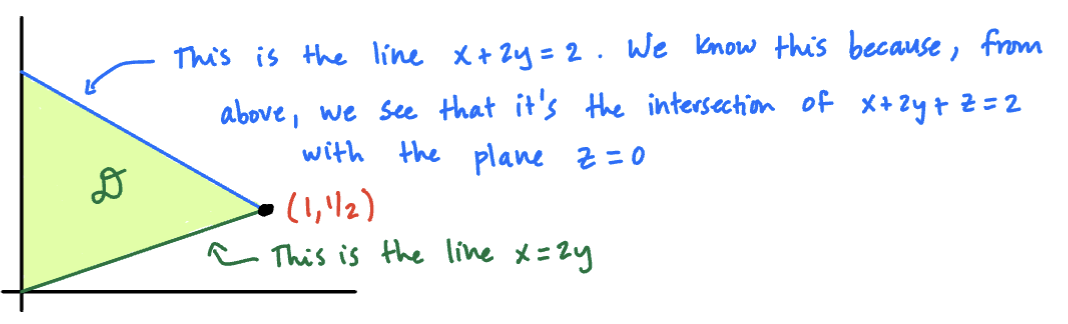 This is the line x + 2y = 2. We know this because, from
above, we see that it's the intersection of x+2y+z=2
with the plane z=0
D
(1, 1/2)
This is the line x=2y